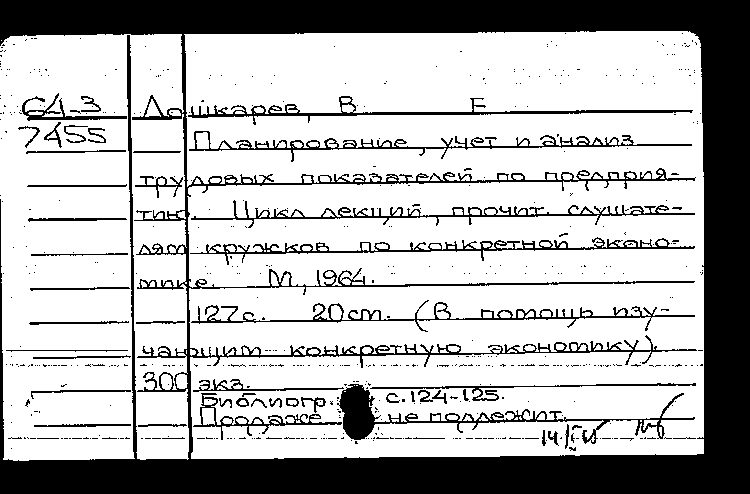 64-3 Лошкарев, В Е
7455 Планирование, учет и анализ
трудовых показателей по предприя-
тию. Цикл лекций, прочит. слушате-
лям кружков по конкретной эконо-
мике. М., 1964.
127 с. 20 см. (В помощь изу-
чающим конкретную экономику).
300 экз.
Библиогр. с. 124-125.
Продаже не подлежит.